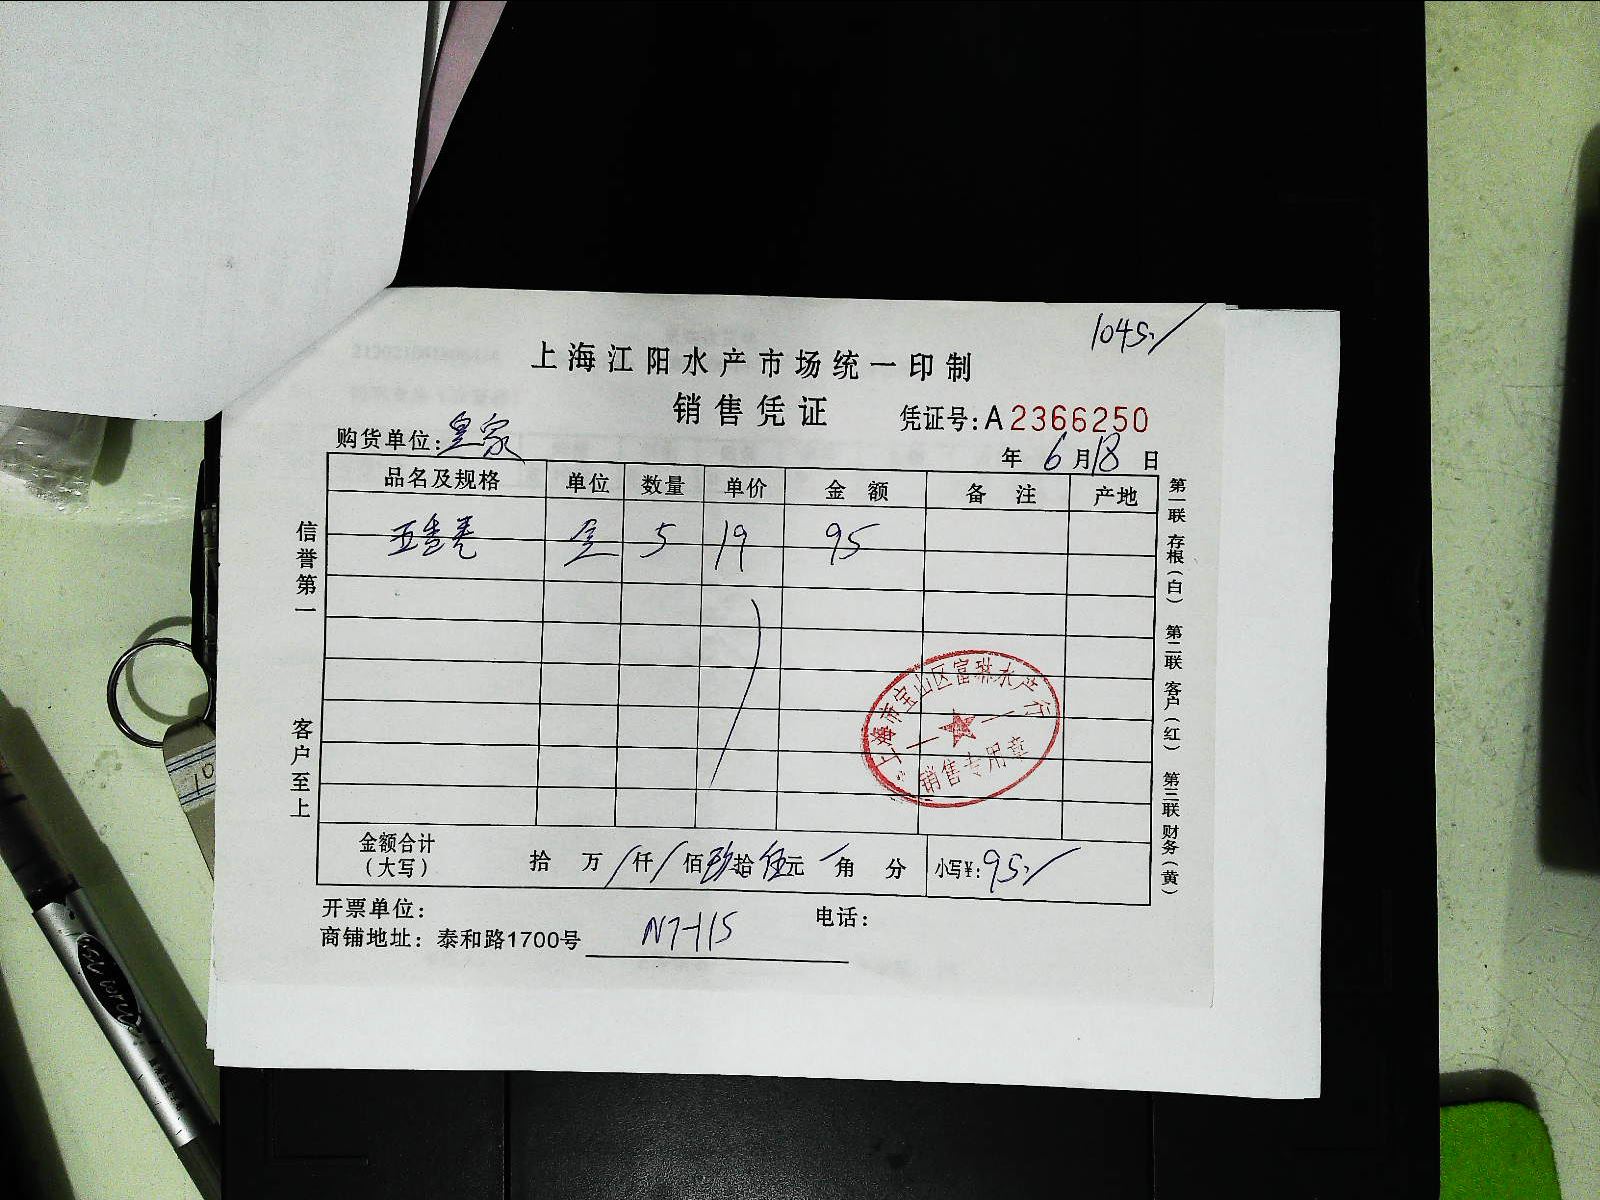 1045.
上海江阳水产市场统一印制
销售凭证
凭证号:A2366250
购货单位:皇家
年 6 月 18 日
品名及规格 单位 数量 单价 金额 备注 产地
五香卷 5 19 95
信誉第一
客户至上
第一联 存根(白) 第二联 客户(红) 第三联 财务(黄)
上海市宝山区富琳水产行
销售专用章
金额合计 (大写) 拾 万 仟 佰 玖拾 伍元 角 分 小写¥:95.
开票单位: 电话:
商铺地址:泰和路1700号 N7-115
10